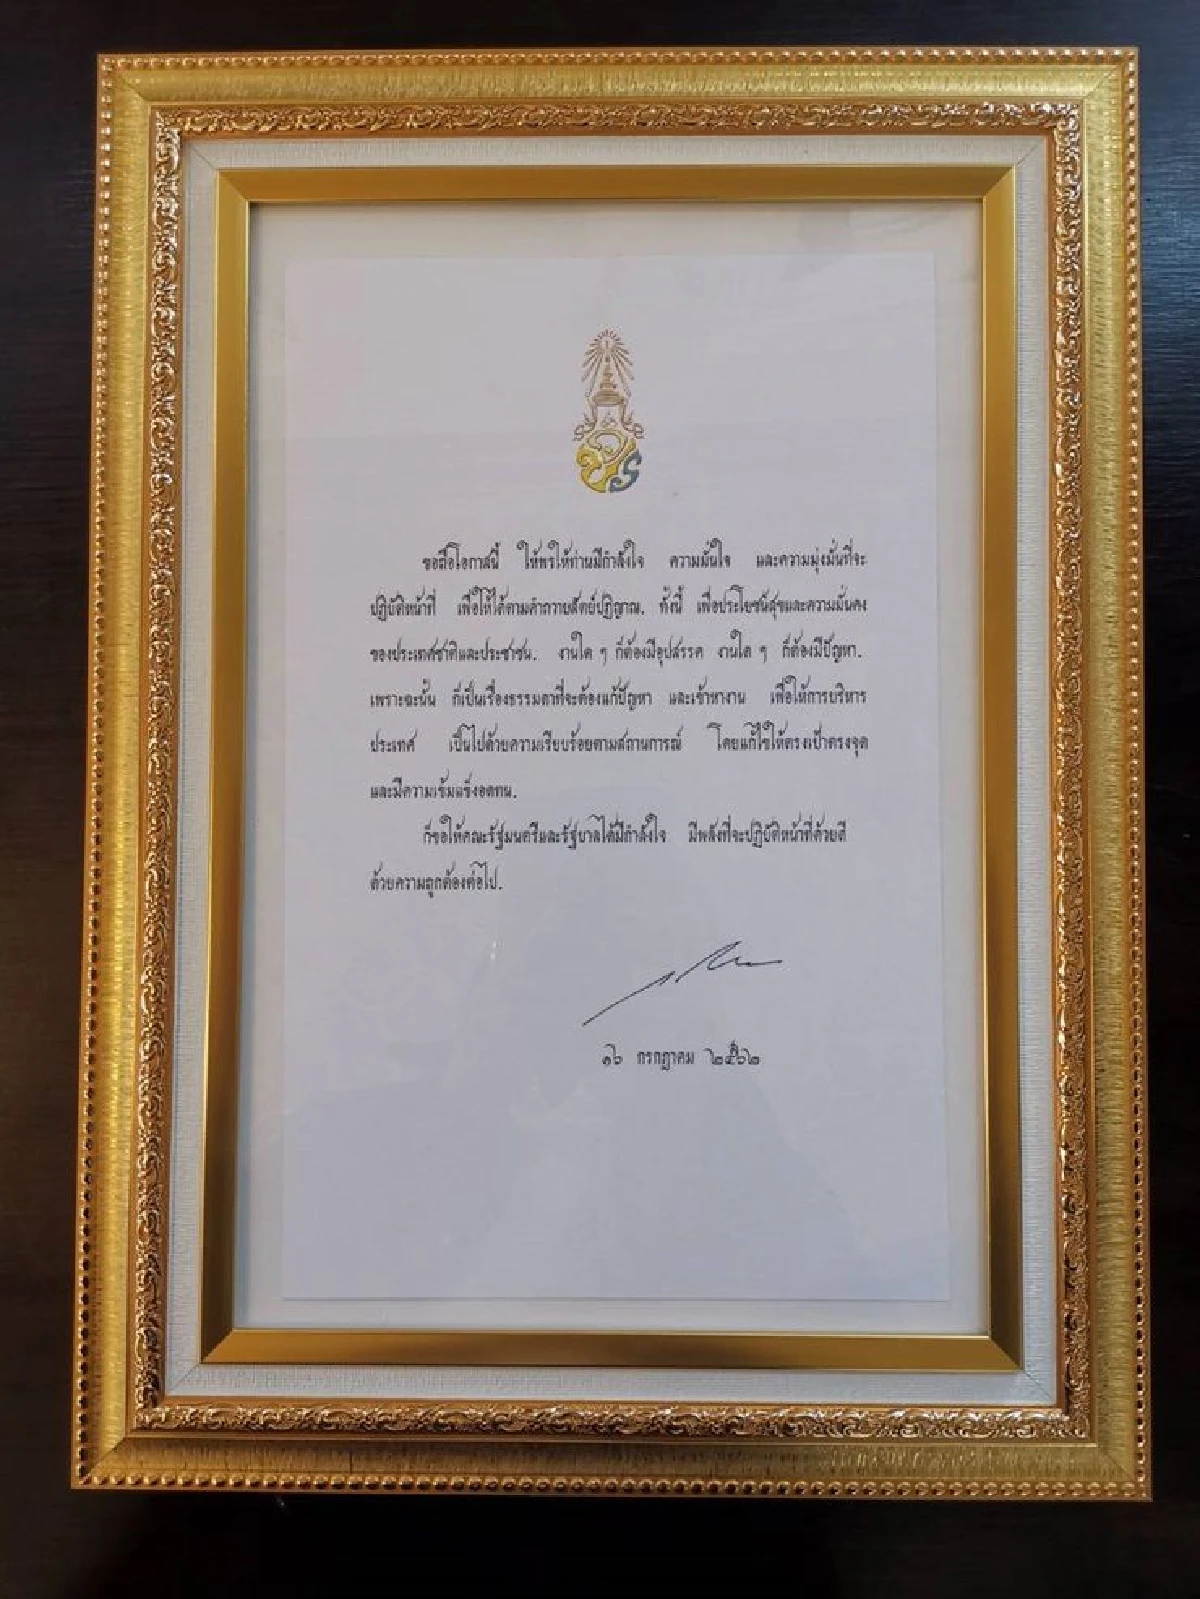 ขอถือโอกาสนี้ ให้พรให้ท่านมีกำลังใจ ความมั่นใจ และความมุ่งมั่นที่จะ
ปฏิบัติหน้าที่ เพื่อให้ได้ตามคำถวายสัตย์ปฏิญาณ. ทั้งนี้ เพื่อประโยชน์สุขและความมั่นคง
ของประเทศชาติและประชาชน. งานใด ๆ ก็ต้องมีอุปสรรค งานใด ๆ ก็ต้องมีปัญหา.
เพราะฉะนั้น ก็เป็นเรื่องธรรมดาที่จะต้องแก้ปัญหา และเข้าหางาน เพื่อให้การบริหาร
ประเทศ เป็นไปด้วยความเรียบร้อยตามสถานการณ์ โดยแก้ไขให้ตรงเป้าตรงจุด
และมีความเข้มแข็งอดทน.
ก็ขอให้คณะรัฐมนตรีและรัฐบาลได้มีกำลังใจ มีพลังที่จะปฏิบัติหน้าที่ด้วยดี
ด้วยความถูกต้องต่อไป.
๑๖ กรกฎาคม ๒๕๖๒